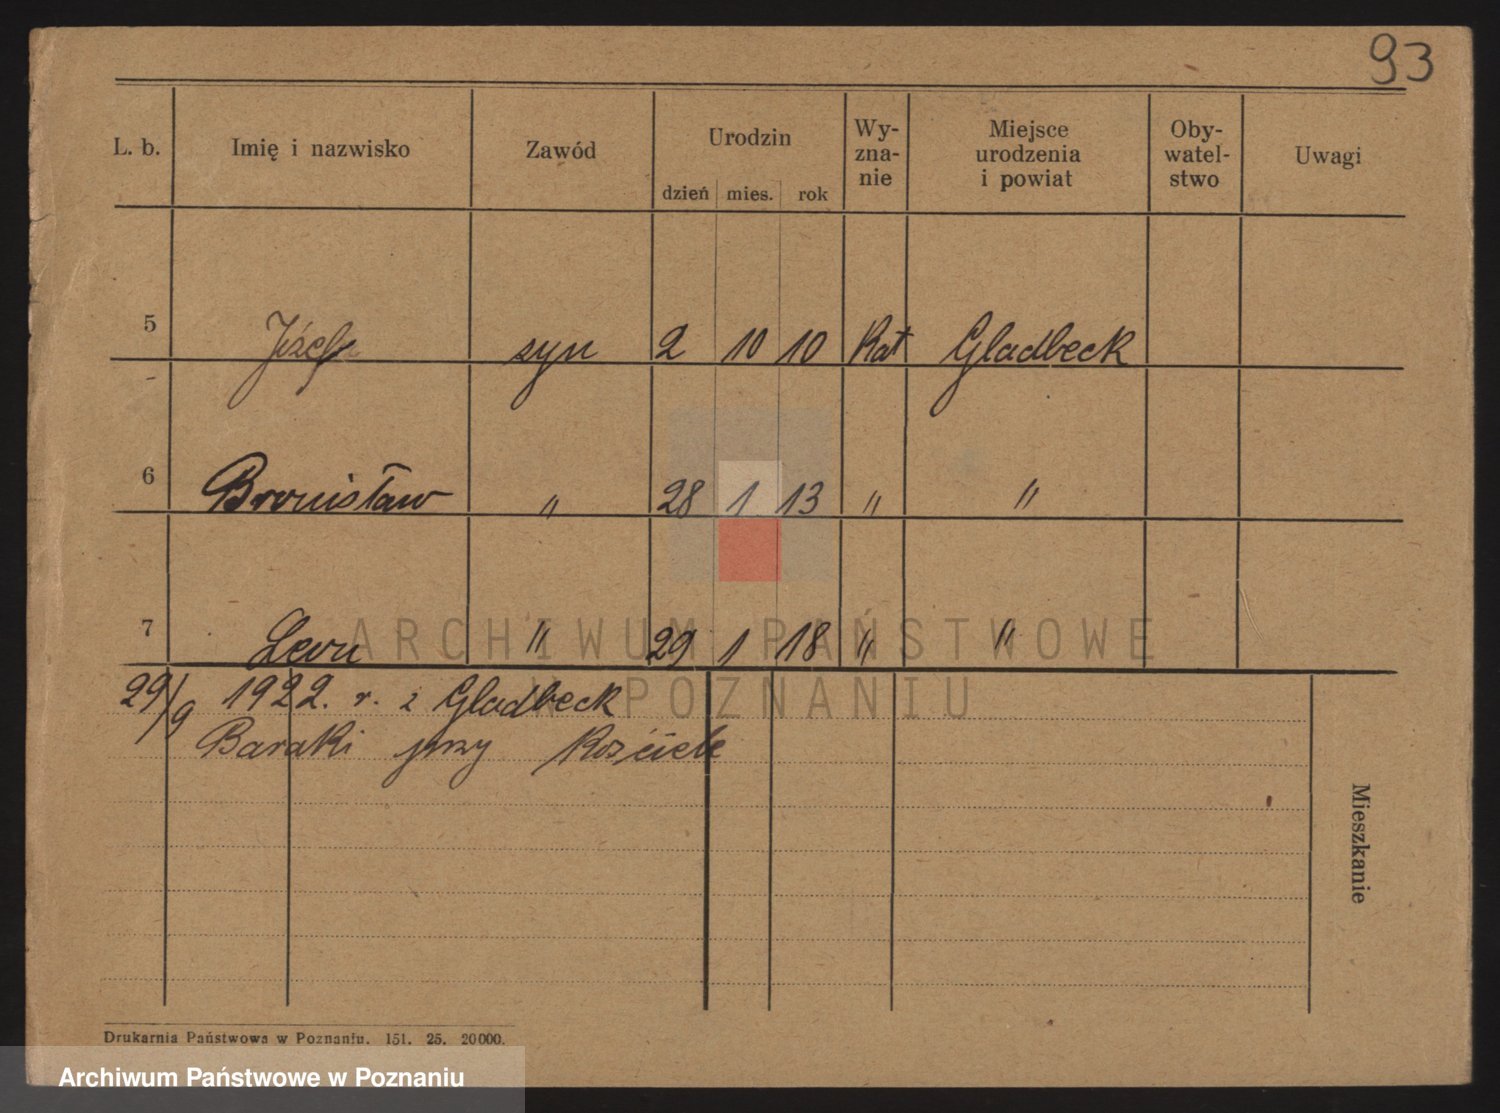 93
L. b. Imię i nazwisko Zawód Urodzin Wy- Miejsce Oby- Uwagi
zna- urodzenia watel-
dzień mies. rok nie i powiat stwo
5 Józef syn 2 10 10 Kat Gladbeck
6 Bronisław " 28 1 13 " "
7 Leon " 29 1 18 " "
29/9 1922. r. z Gladbeck
Baraki przy
Mieszkanie
Drukarnia Państwowa w Poznaniu. 151. 25. 20000.
ARCHIWUM PAŃSTWOWE
W POZNANIU
Archiwum Państwowe w Poznaniu